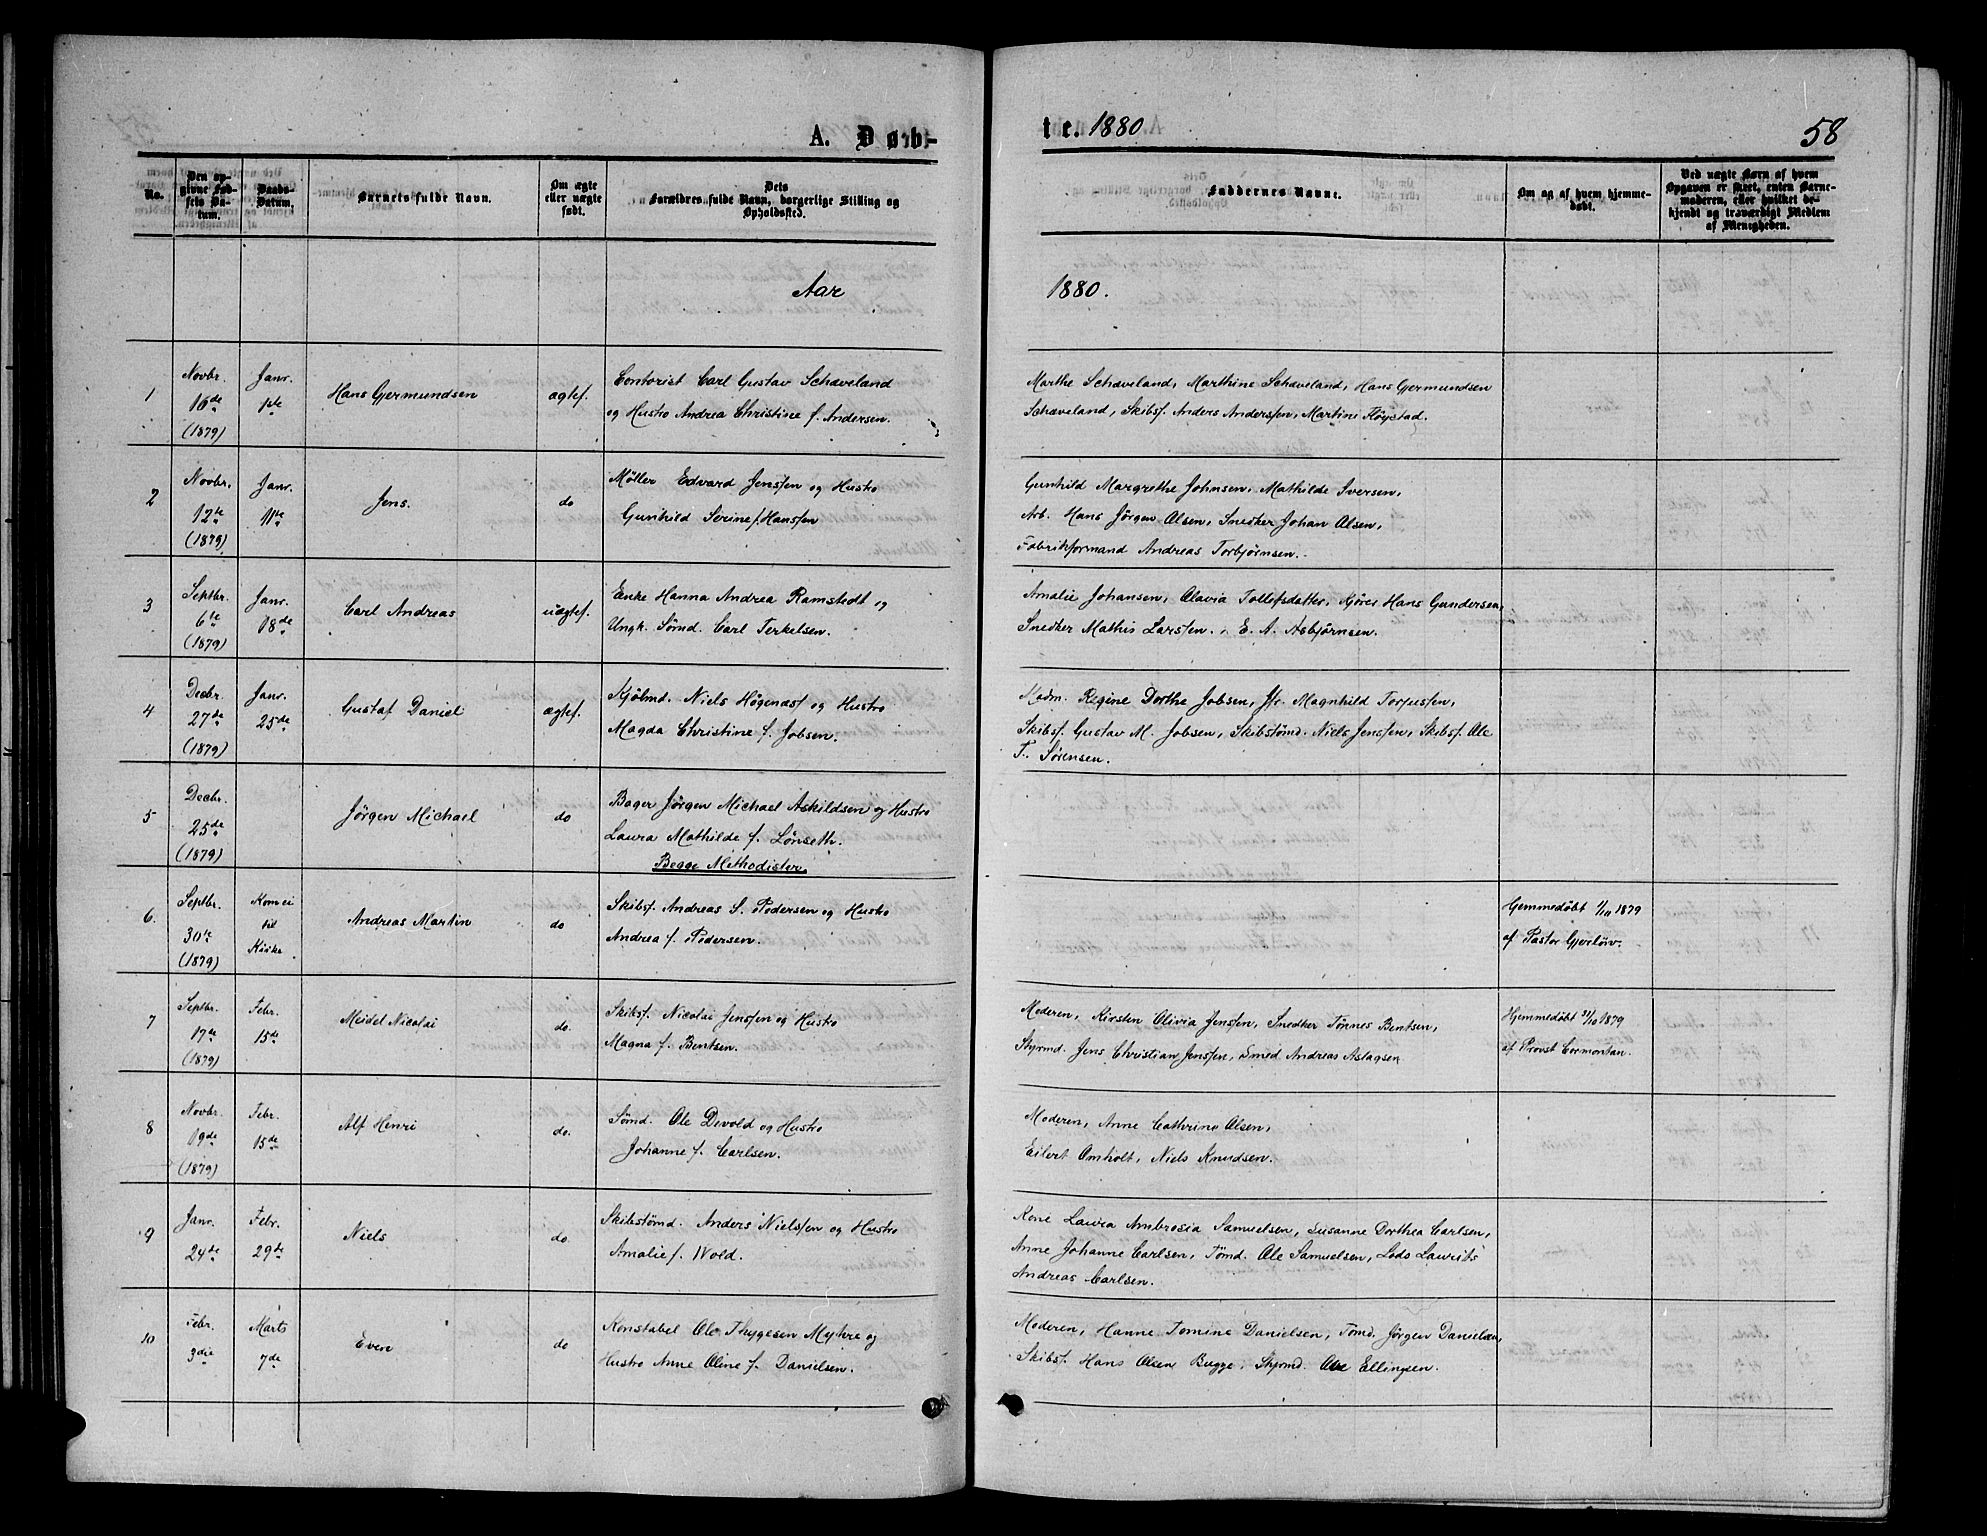 A. Døb-
te. 1880
58
No.
Den op-
givne Fød-
sels Da-
tum.
Daabs-
Datum.
Barnets fulde Navn.
Om ægte
eller uægte
født.
Dets
Forældres fulde Navn, borgerlige Stilling og
Opholdssted.
Faddernes Navne.
Om og af hvem hjemme-
døbt.
Ved uægte Børn af hvem
Opgaven er skeet, enten Barne-
moderen, eller hvilket be-
kjendt og troværdigt Medlem
af Menigheden.
Aar
1880.
1
Novbr.
16de
(1879)
Janr.
1ste
Hans Gjermundsen
ægtef.
Contorist Carl Gustav Schaveland
og Hustro Andrea Christine f. Andersen.
Marthe Schaveland, Marthine Schaveland, Hans Gjermundsen
Schaveland, Skibsf. Anders Anderssen, Martini Höystad.
2
Novbr.
12te
(1879)
Janr.
11te
Jens.
do
Møller Edvard Jenssen og Hustro
Gunhild Serine f. Hanssen
Gunhild Margrethe Johnsen, Mathilde Iversen,
Arb. Hans Jörgen Olsen, Snedker Johan Olsen,
Fabrikformand Andreas Torbjörnsen.
3
Septbr.
6te
(1879)
Janr.
18de
Carl Andreas
uægtef.
Enke Hanna Andrea Ramstedt og
Ungk. Sömd. Carl Terkelsen.
Amalie Johansen, Olavia Tollefsdatter, Kjörer Hans Gundersen,
Snedker Mathis Larssen, E. A. Asbjörnsen.
4
Decbr.
27de
(1879)
Janr.
25de
Gustaf Daniel
ægtef.
Kjölmd. Niels Högenæs og Hustro
Magda Christine f. Jobsen.
Madm. Regine Dorthe Jobsen, Jfr. Magnhild Torjussen,
Skibsf. Gustav M. Jobsen, Skibstömd. Niels Jenssen, Skibsf. Ole
T. Sörensen.
5
Decbr.
25de
(1879)
Jörgen Michael
do
Bager Jörgen Michael Askildsen og Hustro
Laura Mathilde f. Lönseth.
Begge Methodister.
6.
Septbr.
30te
(1879)
Kom ei
til
Kirke
Andreas Martin
do
Skibsf. Andreas S. Pedersen og Hustro
Andrea f. Pedersen.
Hjemmedöbt 1/10 1879
af Pastor Gjerlöw.
7
Septbr.
17de
(1879)
Febr.
15de
Meidel Nicolai
do.
Skibsf. Nicolai Jenssen og Hustro
Magna f. Bentsen.
Moderen, Kirsten Olivia Jenssen, Snedker Tönnes Bentsen,
Styrmd. Jens Christian Jenssen, Smed Andreas Aslagsen
Hjemmedöbt 31/10 1879
af Provst Cormontan.
8
Novbr.
19de
(1879)
Febr.
15de
Alf Henri
do.
Sömd. Ole Devold og Hustro
Johanne f. Carlsen.
Moderen, Anne Cathrine Olsen,
Eilert Omholt, Niels Knudsen.
9
Janr.
24de
Febr.
29de
Niels
do
Skibstömd. Anders Nielssen og Hustro
Amalie f. Wold.
Kone Laura Ambrosia Samuelsen, Susanne Dorthea Carlsen,
Anne Johanne Carlsen, Tömd. Ole Samuelsen, Lods Laurits
Andreas Carlsen.
10
Febr.
3die
Marts
7de
Even
do
Konstabel Ole Thygesen Myhre og
Hustro Anne Oline f. Danielsen.
Moderen, Hanne Tomine Danielsen, Tömd. Jörgen Danielsen,
Skibsf. Hans Olsen Bugge, Styrmd. Ole Ellingsen.